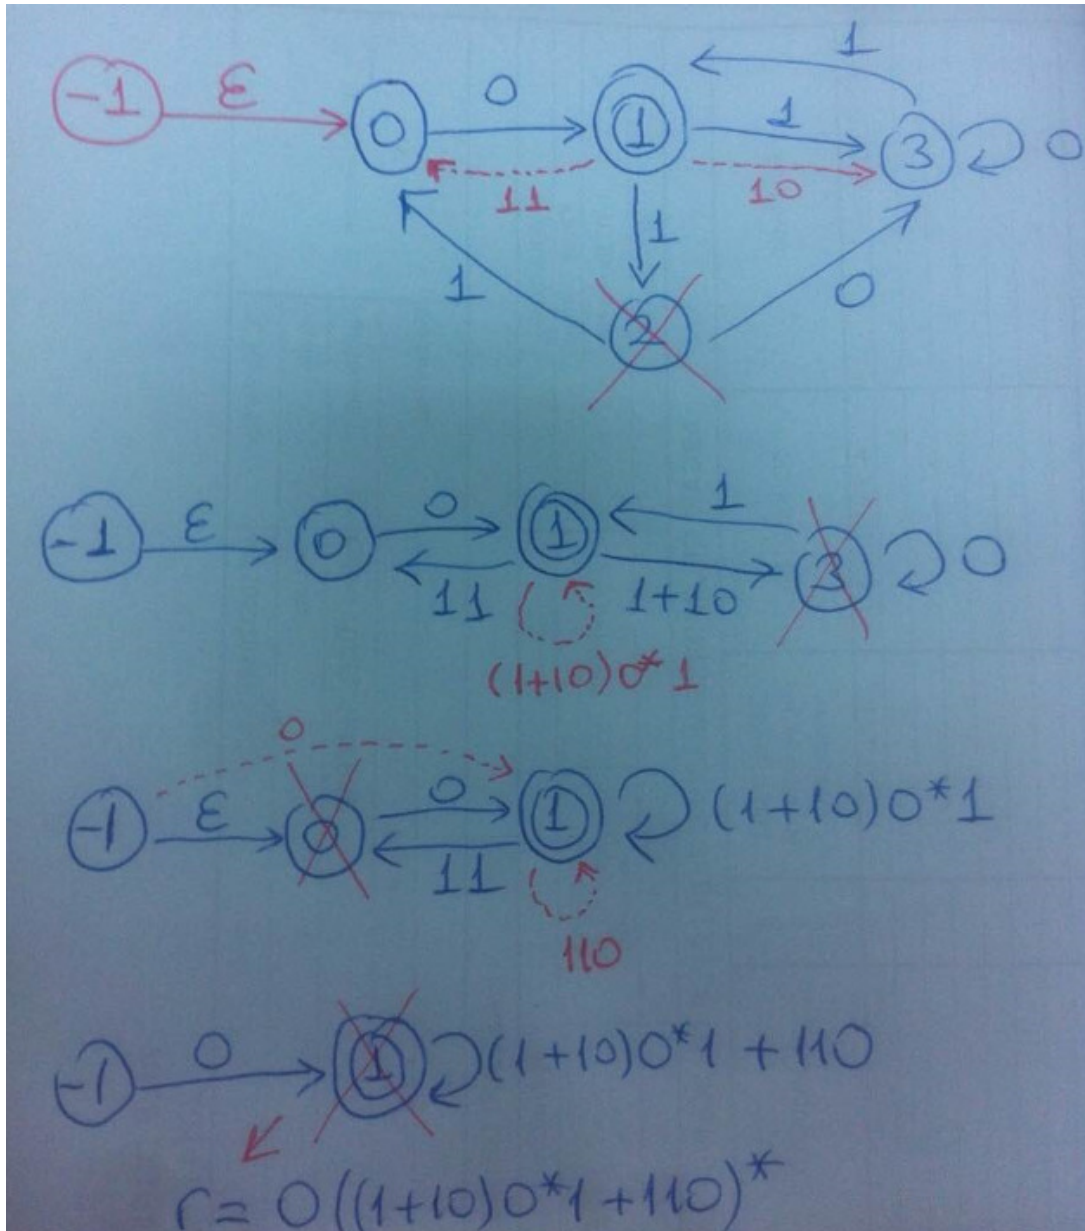 1
-1 ε 0 0 1 1 3 0
11 10
1
1 2 0
-1 ε 0 0 1 1 3 0
11 1+10
(1+10)0*1
0
-1 ε 0 0 1 (1+10)0*1
11
110
-1 0 1 (1+10)0*1+110
r = 0((1+10)0*1+110)*